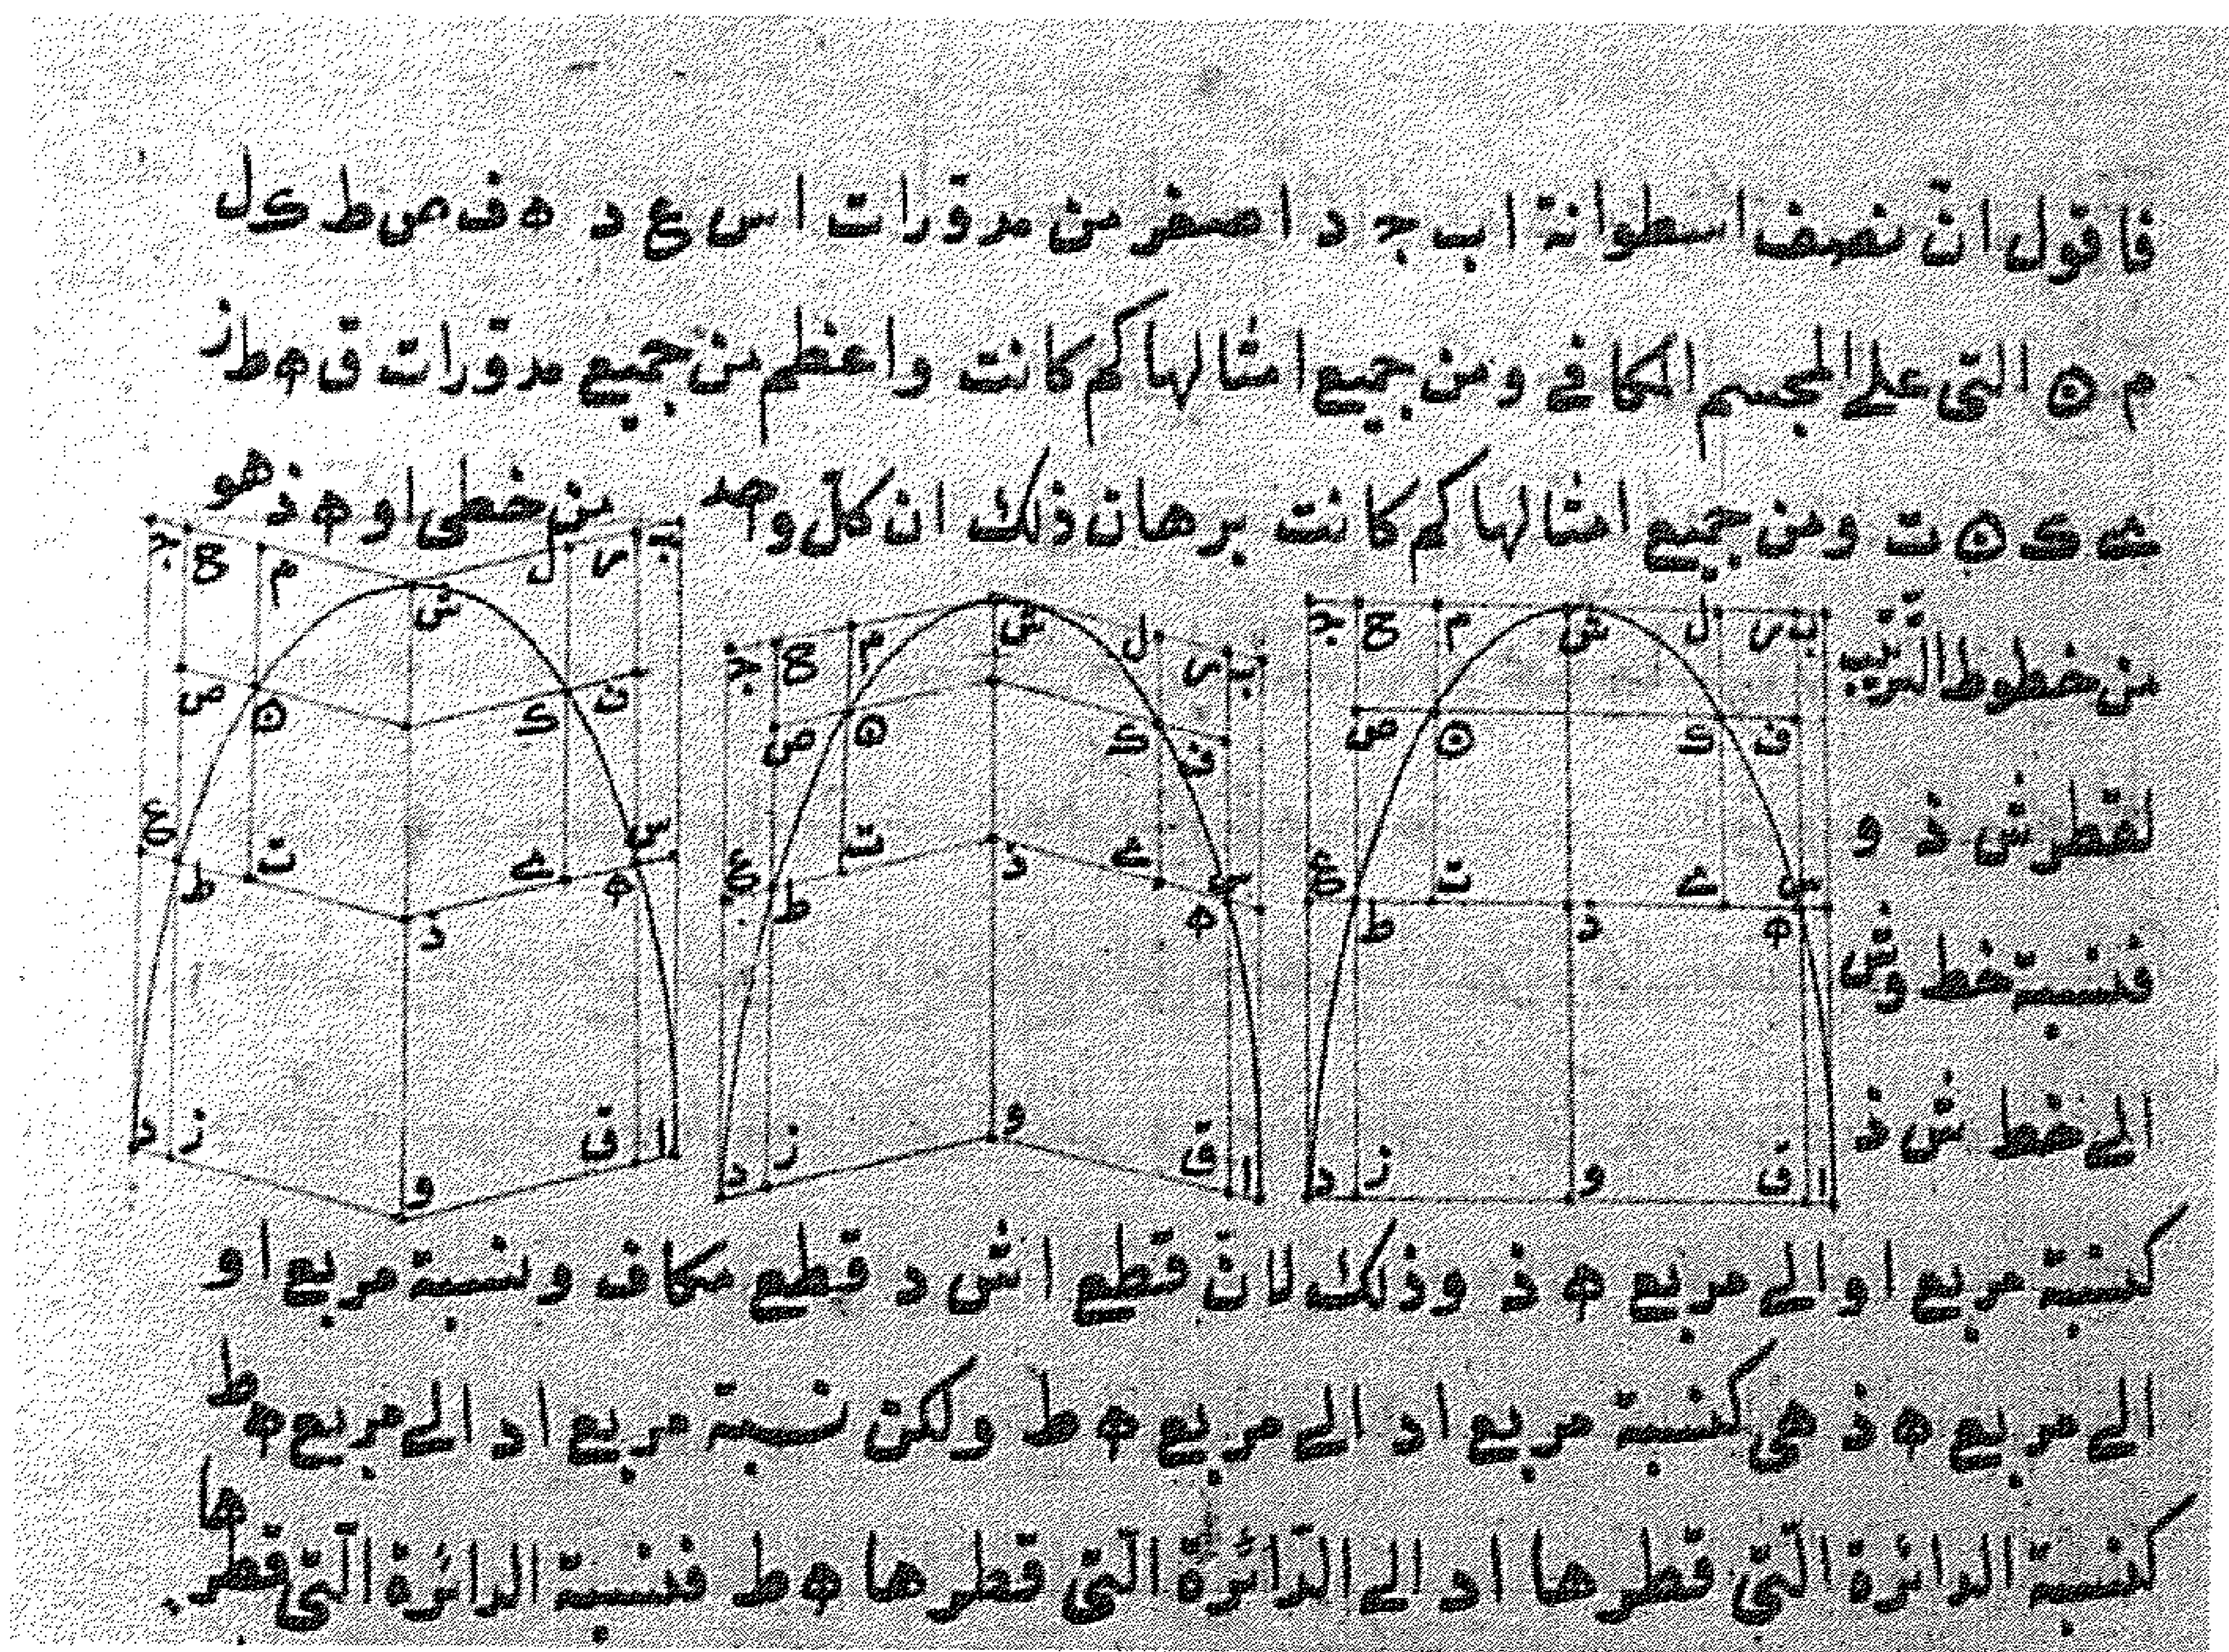 فاقول ان نصف اسطوانة ا ب ج د اصغر من مدورات ا س ع د ه ف ص ط ك ل
م ۞ التى على المجسم المكافى ومن جميع امثالها كم كانت واعظم من جميع مدورات ق ه ط ز
ى ك ۞ ت ومن جميع امثالها كم كانت برهان ذلك ان كل وحد من خطى ا و ه ذ هو
من خطوط الترتيب
لقطر ش ذ و
فنسبة خط وش
الى خط ش ذ
كنسبة مربع ا و الى مربع ه ذ وذلك لان قطع ا ش د قطع مكاف ونسبة مربع ا و
الى مربع ه ذ هى كنسبة مربع ا د الى مربع ه ط ولكن نسبة مربع ا د الى مربع ه ط
كنسبة الدائرة التى قطرها ا د الى الدائرة التى قطرها ه ط فنسبة الدائرة التى قطرها